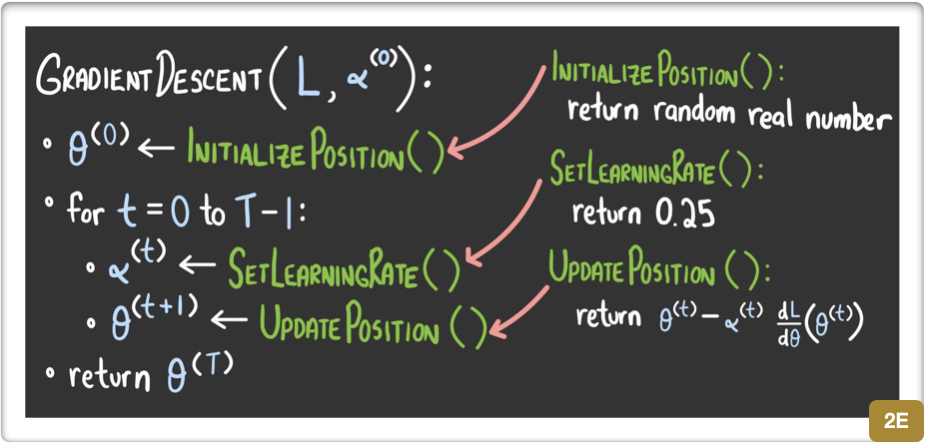 GRADIENTDESCENT(L, α^(0)):
• θ^(0) ← INITIALIZEPOSITION()
• for t = 0 to T-1:
• α^(t) ← SETLEARNINGRATE()
• θ^(t+1) ← UPDATEPOSITION()
• return θ^(T)
INITIALIZEPOSITION():
return random real number
SETLEARNINGRATE():
return 0.25
UPDATEPOSITION():
return θ^(t) - α^(t) dL/dθ(θ^(t))
2E